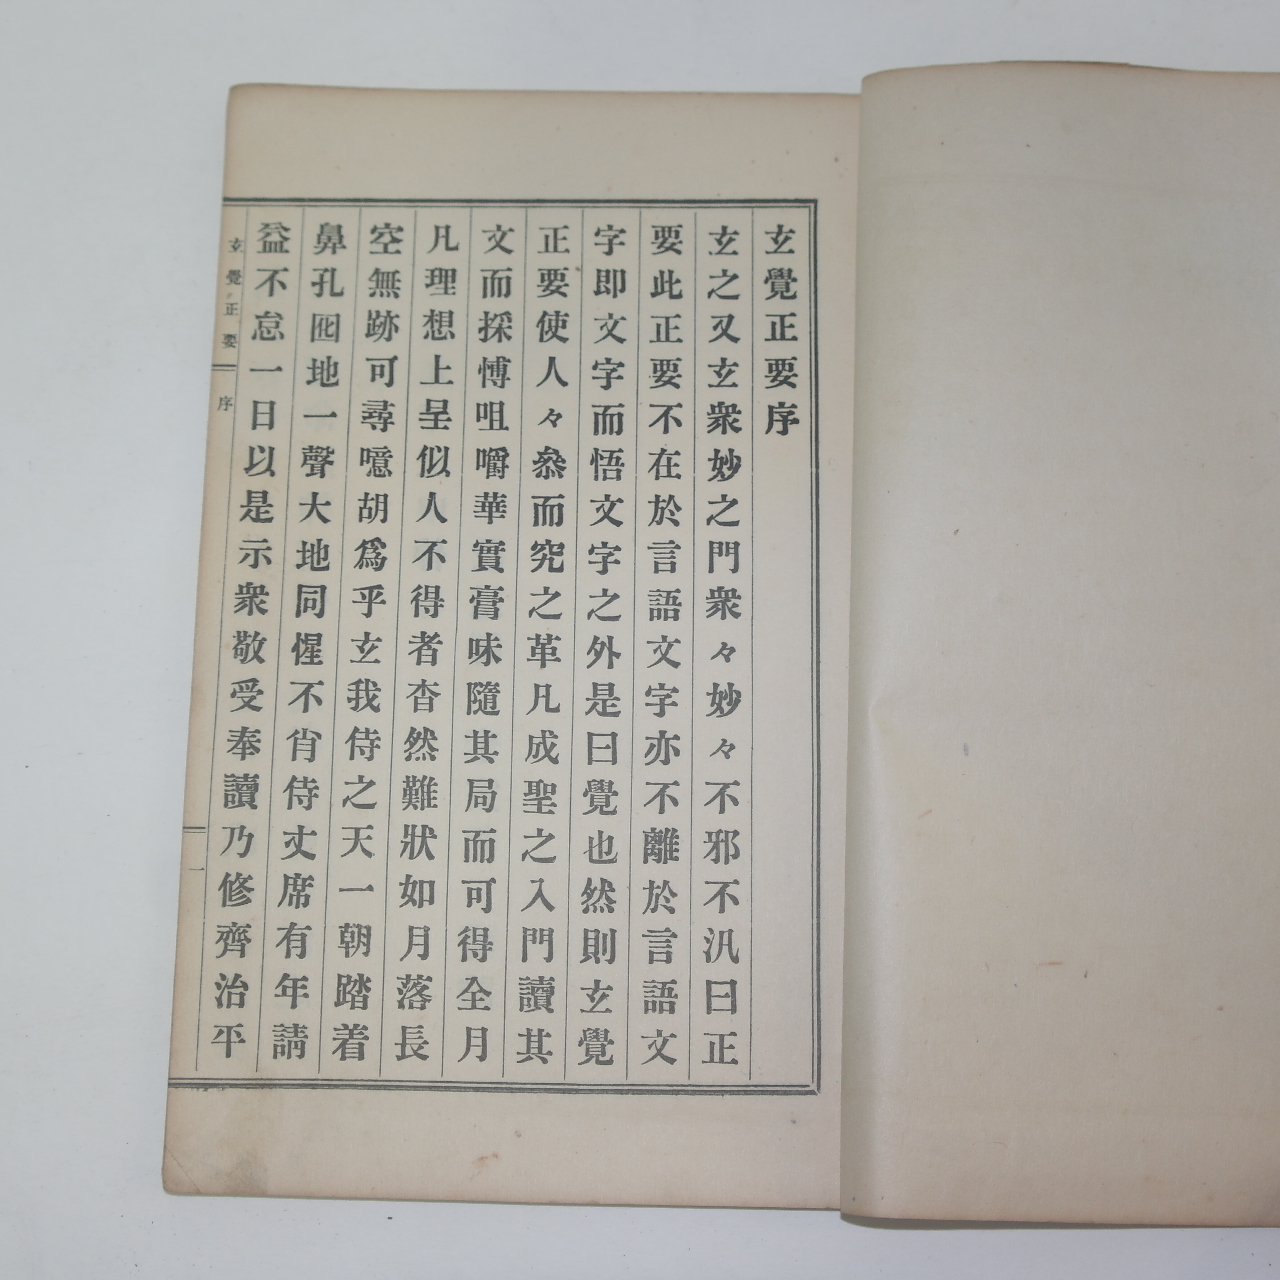 玄覺正要序
玄之又玄衆妙之門衆々妙々不邪不汎曰正
要此正要不在於言語文字亦不離於言語文
字即文字而悟文字之外是曰覺也然則玄覺
正要使人々叅而究之革凡成聖之入門讀其
文而採愽咀嚼華實膏味隨其局而可得全月
凡理想上呈似人不得者杳然難狀如月落長
空無跡可尋噫胡爲乎玄我侍之天一朝踏着
鼻孔㘞地一聲大地同惺不肖侍丈席有年請
益不怠一日以是示衆敬受奉讀乃修齊治平
玄覺正要 序 一